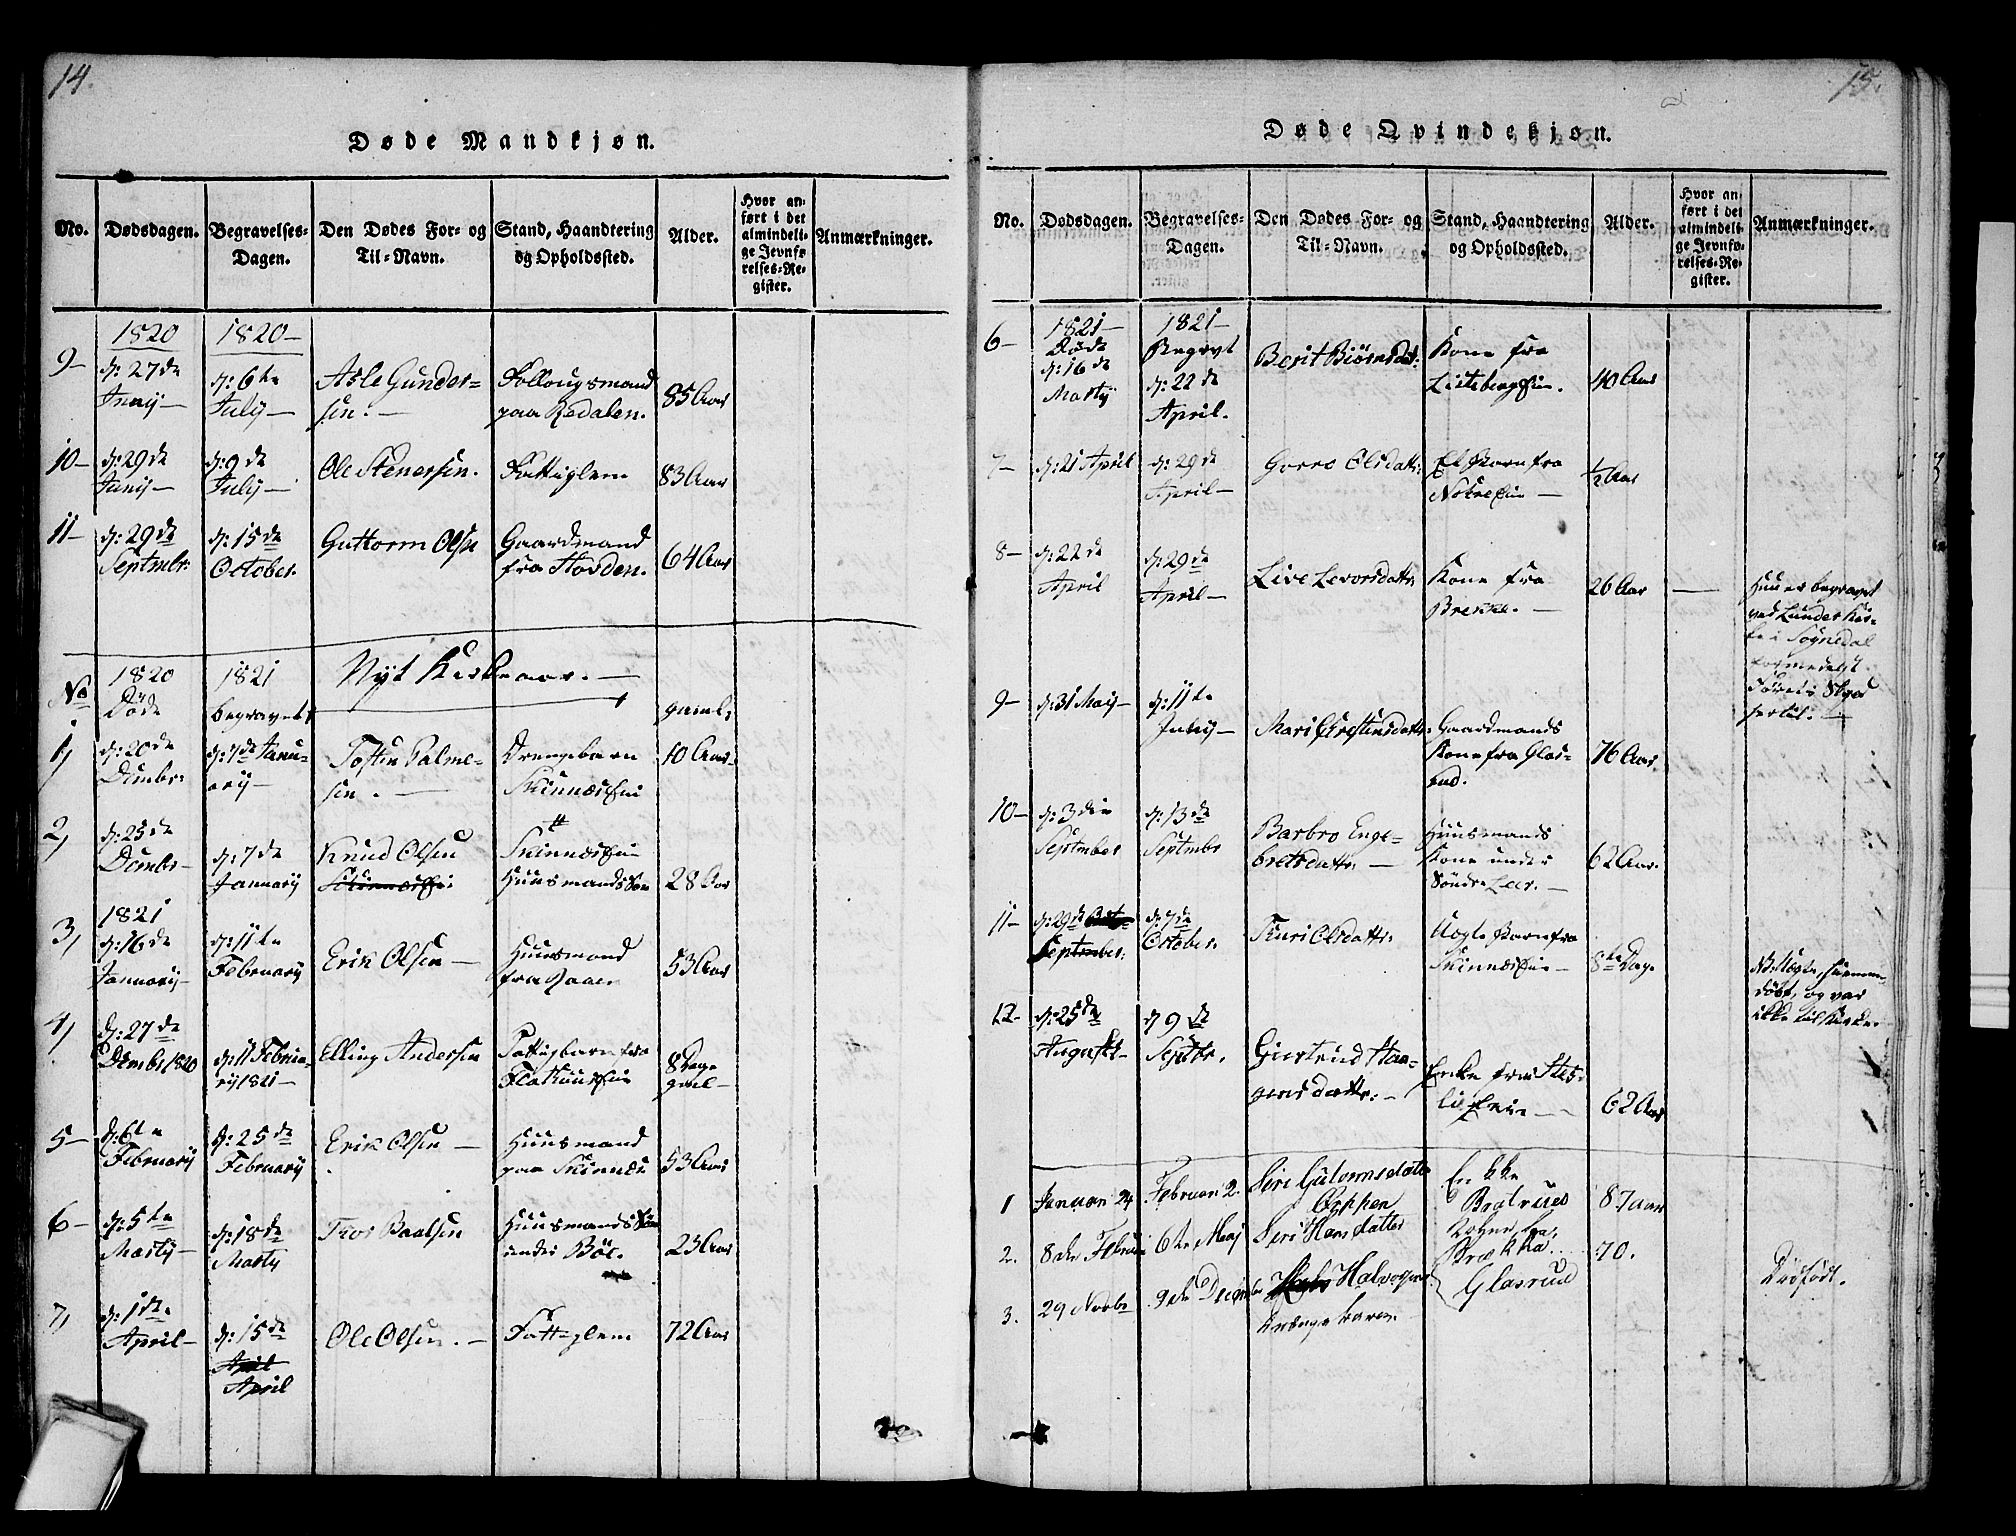 14.
Døde Mandkjøn.
No.
Dødsdagen.
Begravelses-
Dagen.
Den Dødes For- og
Til-Navn.
Stand, Haandtering
og Opholdssted.
Alder.
Hvor an-
ført i det
almindeli-
ge Jevnfø-
relses-Re-
gister.
Anmærkninger.
1820
1820-
9-
d: 27de
Juny-
d: 6te
July-
Asle Gunder-
sen.-
paa Redalen.
85 Aar
10-
d: 29de
Juny-
d: 9de
July-
Ole Stenersen.
Fattiglem
83 Aar
11-
d: 29de
Septmbr:
d: 15de
October.
Guttorm Olsen
Gaardmand
fra Hovden.
64 Aar
No
1820
Døde
1821
begravet
Nyt Kirkeaar.-
gaml:
1,
d: 20de
Dcmbr:
d: 7de Janu-
ary-
Tosten Palme-
sen.-
Drengebarn
Skinnæs Eie
10 Aar
2,
d: 25de
Dcmbr-
d: 7de
January
Knud Olsen
Skinnæs Eie
Skinnæs Eie
Huusmands Søn
28 Aar
3,
1821
d: 16de
January-
d: 11te
February
Erik Olsen-
Huusmand
fra
53 Aar
4,
d: 27de
Dcmbr 1820
d: 11 Februa-
ry 1821-
Elling Andersen
fra
8 Dage
gml-
5-
d: 6te
February
d: 25de
February
Erik Olsen-
Huusmand
paa Skinnæs
53 Aar
6-
d: 5te
Marty-
d: 18de
Marty
Thor Paalsen
Huusmands Søn
under Böe.
23 Aar
7,
d: 1ste
April-
d: 15de
April
April
Ole Olsen.-
Fattiglem
72 Aar
15.
Døde Qvindekjøn.
No.
Dødsdagen.
Begravelses-
Dagen.
Den Dødes For- og
Til-Navn.
Stand, Haandtering
og Opholdssted.
Alder.
Hvor an-
ført i det
almindeli-
ge Jevnfø-
relses-Re-
gister.
Anmærkninger.
6-
1821-
Døde
d: 16de
Marty
1821-
Begravt
d: 22de
April.
Berit Biörnsdat:
Kone fra
40 Aar
7-
d: 21 April
d: 29de
April-
Gorro Olsdattr:
Et Barn fra
½ Aar
8-
d: 22de
April
d: 29de
April-
Live Levorsdattr
Kone fra
Brekke.-
26 Aar
Hun er begravet
ved Lunder Kir-
ke i Sognedal
9-
d: 31 May-
d: 11te
Juny-
Mari Christensdattr:
Gaardmands
Kone fra Glas-
rud.
76 Aar.
10-
d: 3die
September
d: 13de
Septmbr
Barbro Enge-
bretsdattr:-
Huusmands
Kone under
Söndre Leer.-
62 Aar.
11-
d: 29de
September:
d: 7de
October.
Thuri Olsdattr:
Uægte Barn fra
Skinnæs Eie-
8te Dag.
döbt, og var
ikke til Kirke.
12-
d: 25de
August-
d 9de
Septbr.
Giertrud Haa-
gensdattr:-
Enke fra
62 Aar
1
Januar 24
Februar 2.
Siri Gulormsdatter
Oppen
Enke
87 aar
2.
8de Februar
6te Maj
Siri Hansdatter
70.
3.
29 Novbr
9de Decembr
Halvogsens
Drænge barn.
Glasrud
Dødfødt.